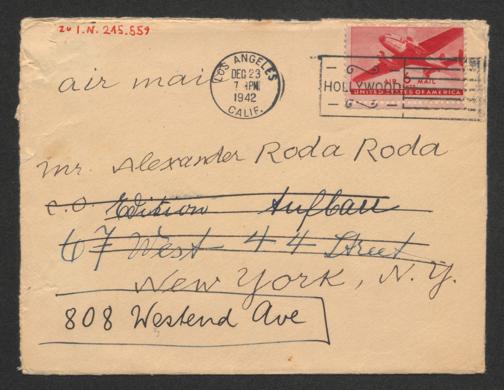 zu I.N. 215.559
air mail
LOS ANGELES
DEC 23
7 PM
1942
CALIF.
HOLLYWOOD
6
AIR MAIL
UNITED STATES OF AMERICA
Mr. Alexander Roda Roda
c.o. Edition Aufbau
67 West 44 Street
New York, N.Y.
808 Westend Ave